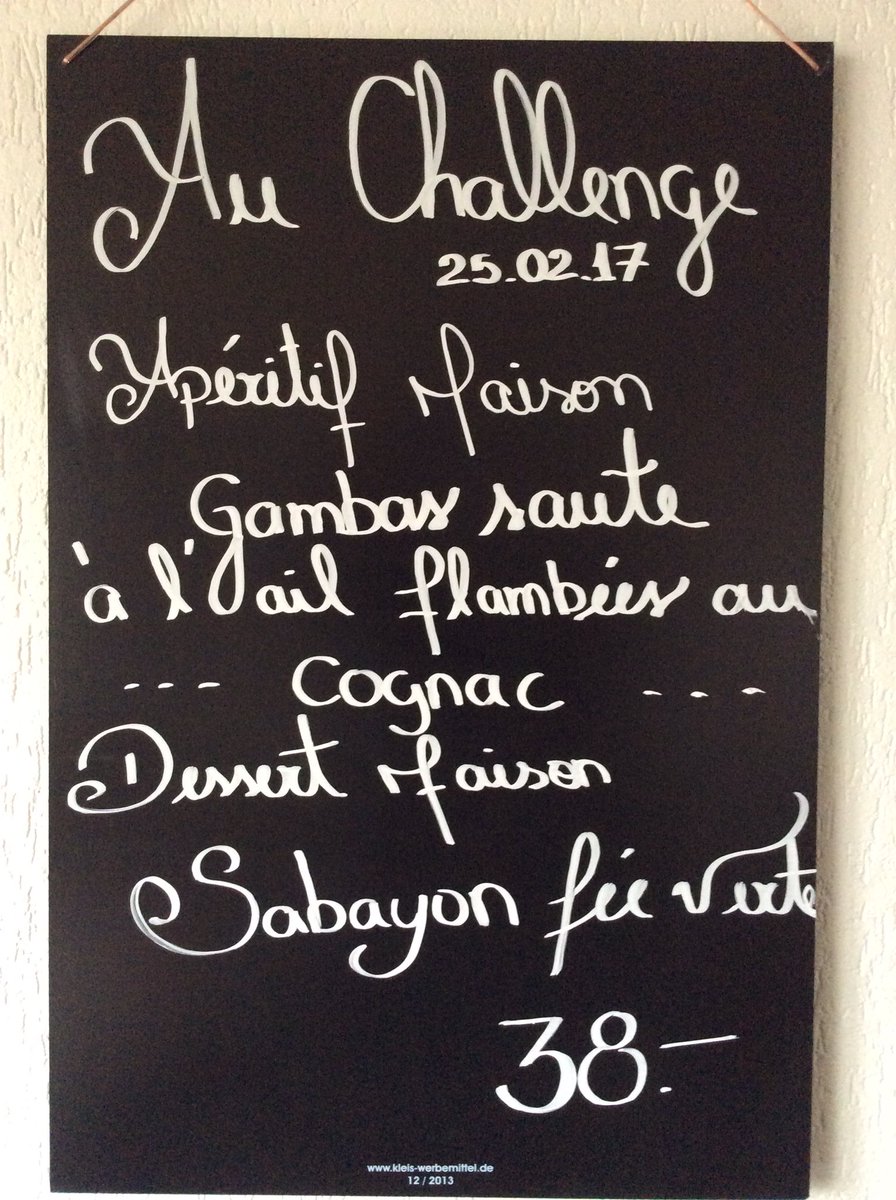 Au Challenge
25.02.17
Apéritif Maison
Gambas saute
à l'ail flambées au
--- Cognac ---
Dessert Maison
Sabayon fée verte
38.-
www.kleis-werbemittel.de
12 / 2013